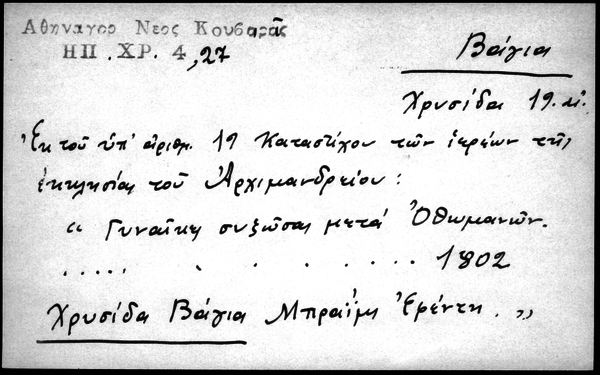 Αθηναγορ Νεος Κουβαρᾶς
ΗΠ .ΧΡ. 4,27
Βάγια
Χρυσίδα 19.αἰ.
Ἐκ τοῦ ὑπ' ἀριθμ. 19 Καταστίχου τῶν ἱερέων τῆς
ἐκκλησίας τοῦ Ἀρχιμανδρείου :
" Γυναῖκες συζῶσαι μετά Ὀθωμανῶν.
. . . . . . . . . . . . 1802
Χρυσίδα Βάγια Μπραΐμη Ἐφέντη . "